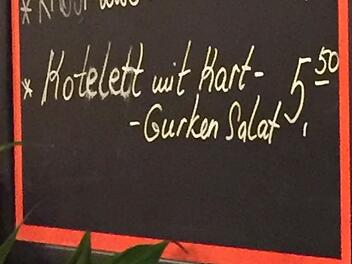 * Kotelett mit Kart-
-Gurken Salat 5,50